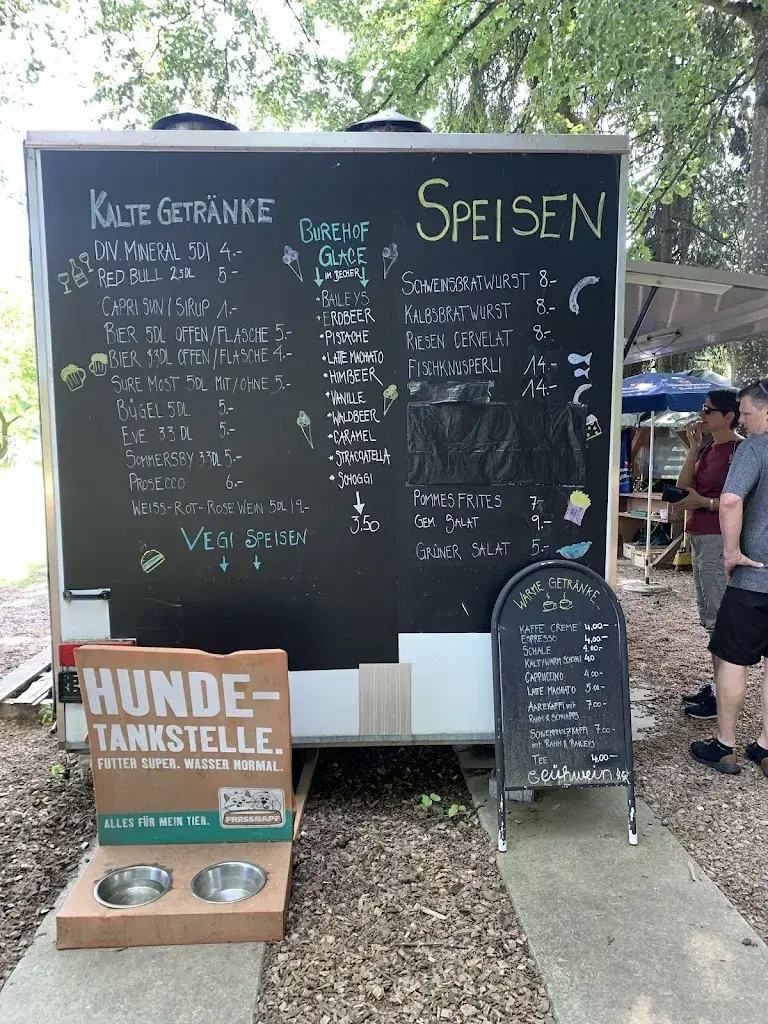 KALTE GETRÄNKE
DIV. MINERAL 5DL 4.-
RED BULL 2.5DL 5.-
CAPRI SUN / SIRUP 1.-
BIER 5DL OFFEN/FLASCHE 5.-
BIER 33DL OFFEN/FLASCHE 4.-
SURE MOST 5DL MIT/OHNE 5.-
BÜGEL 5DL 5.-
EVE 33DL 5.-
SOMMERSBY 33DL 5.-
PROSECCO 6.-
WEISS-ROT-ROSE WEIN 5DL 19.-
VEGI SPEISEN
BUREHOF
GLACE
IM BECHER
• BAILEYS
• ERDBEER
• PISTACHE
• LATTE MACHIATO
• HIMBEER
• VANILLE
• WALDBEER
• CARAMEL
• STRACCIATELLA
• SCHOGGI
3.50
SPEISEN
SCHWEINSBRATWURST 8.-
KALBSBRATWURST 8.-
RIESEN CERVELAT 8.-
FISCHKNUSPERLI 14.-
14.-
POMMES FRITES 7.-
GEM. SALAT 9.-
GRÜNER SALAT 5.-
WARME GETRÄNKE
KAFFE CREME 4.00.-
ESPRESSO 4.00.-
SCHALE 4.00.-
KALT/WARM SCHOGGI 4.0
CAPPUCCINO 4.00-
LATTE MACHIATO 5.00-
AAREKAFFI mit 7.00-
RAHM & SCHNAPPS
SCHWEMMHOLZKAFFI 7.00-
mit RAHM & BAILEYS
TEE 4.00-
GLÜHWEIN
HUNDE-
TANKSTELLE.
FUTTER SUPER. WASSER NORMAL.
ALLES FÜR MEIN TIER.
FRESSNAPF